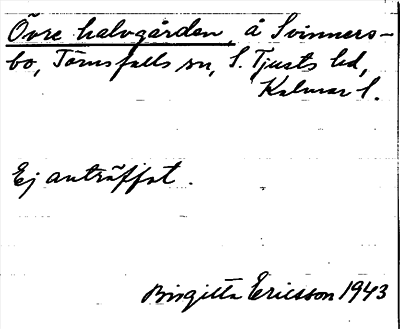 Övre halvgården, å Svinners-
bo, Törnsfalls sn, S. Tjusts hd,
Kalmar l.
Ej anträffat.
Birgitta Ericsson 1943